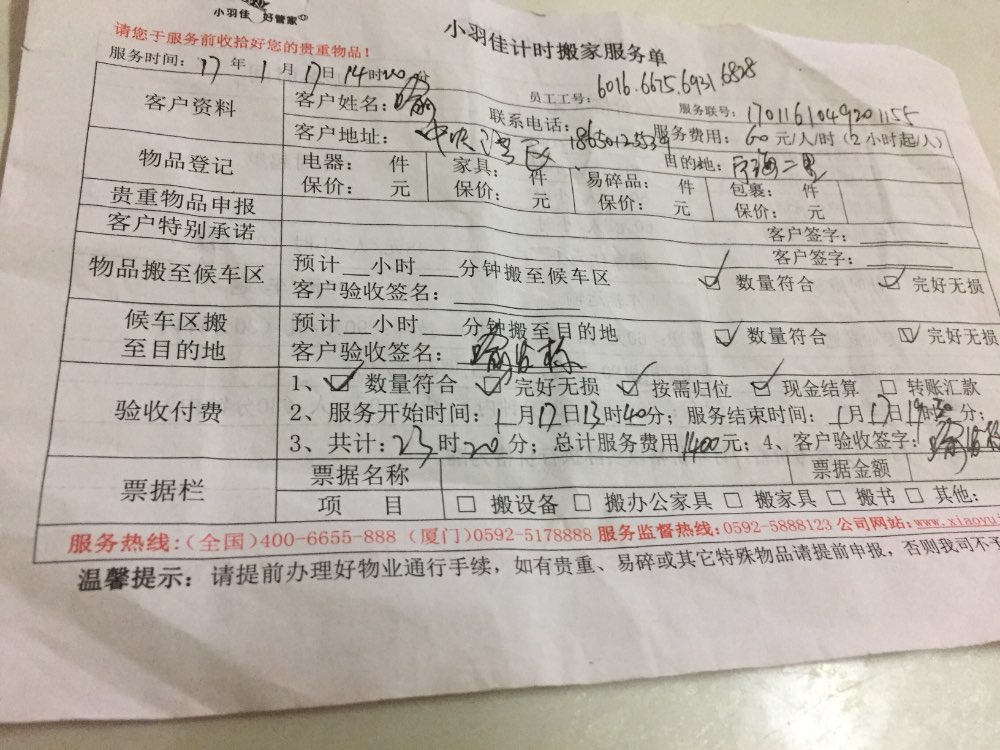 小羽佳 好管家
小羽佳计时搬家服务单
请您于服务前收拾好您的贵重物品！
服务时间：17年1月17日14时20分
员工工号：6016.6675.6931.6828
服务联号：1701161049201155
客户资料
客户姓名：
联系电话：18650125539
服务费用：60元/人/时（2小时起/人）
客户地址：中央湾区
目的地：
物品登记
电器： 件 家具： 件 易碎品： 件 包裹： 件
保价： 元 保价： 元 保价： 元 保价： 元
贵重物品申报
客户签字：
客户特别承诺
客户签字：
物品搬至候车区
预计 小时 分钟搬至候车区
数量符合 完好无损
客户验收签名：
候车区搬至目的地
预计 小时 分钟搬至目的地
数量符合 完好无损
客户验收签名：
验收付费
1、数量符合 完好无损 按需归位 现金结算 转账汇款
2、服务开始时间：1月17日13时40分；服务结束时间：1月17日19时30分；
3、共计：23时20分；总计服务费用1400元；4、客户验收签字：
票据栏
票据名称 票据金额
项 目 搬设备 搬办公家具 搬家具 搬书 其他：
服务热线：（全国）400-6655-888（厦门）0592-5178888 服务监督热线：0592-5888123 公司网站：www.xiaoyu
温馨提示：请提前办理好物业通行手续，如有贵重、易碎或其它特殊物品请提前申报，否则我司不予